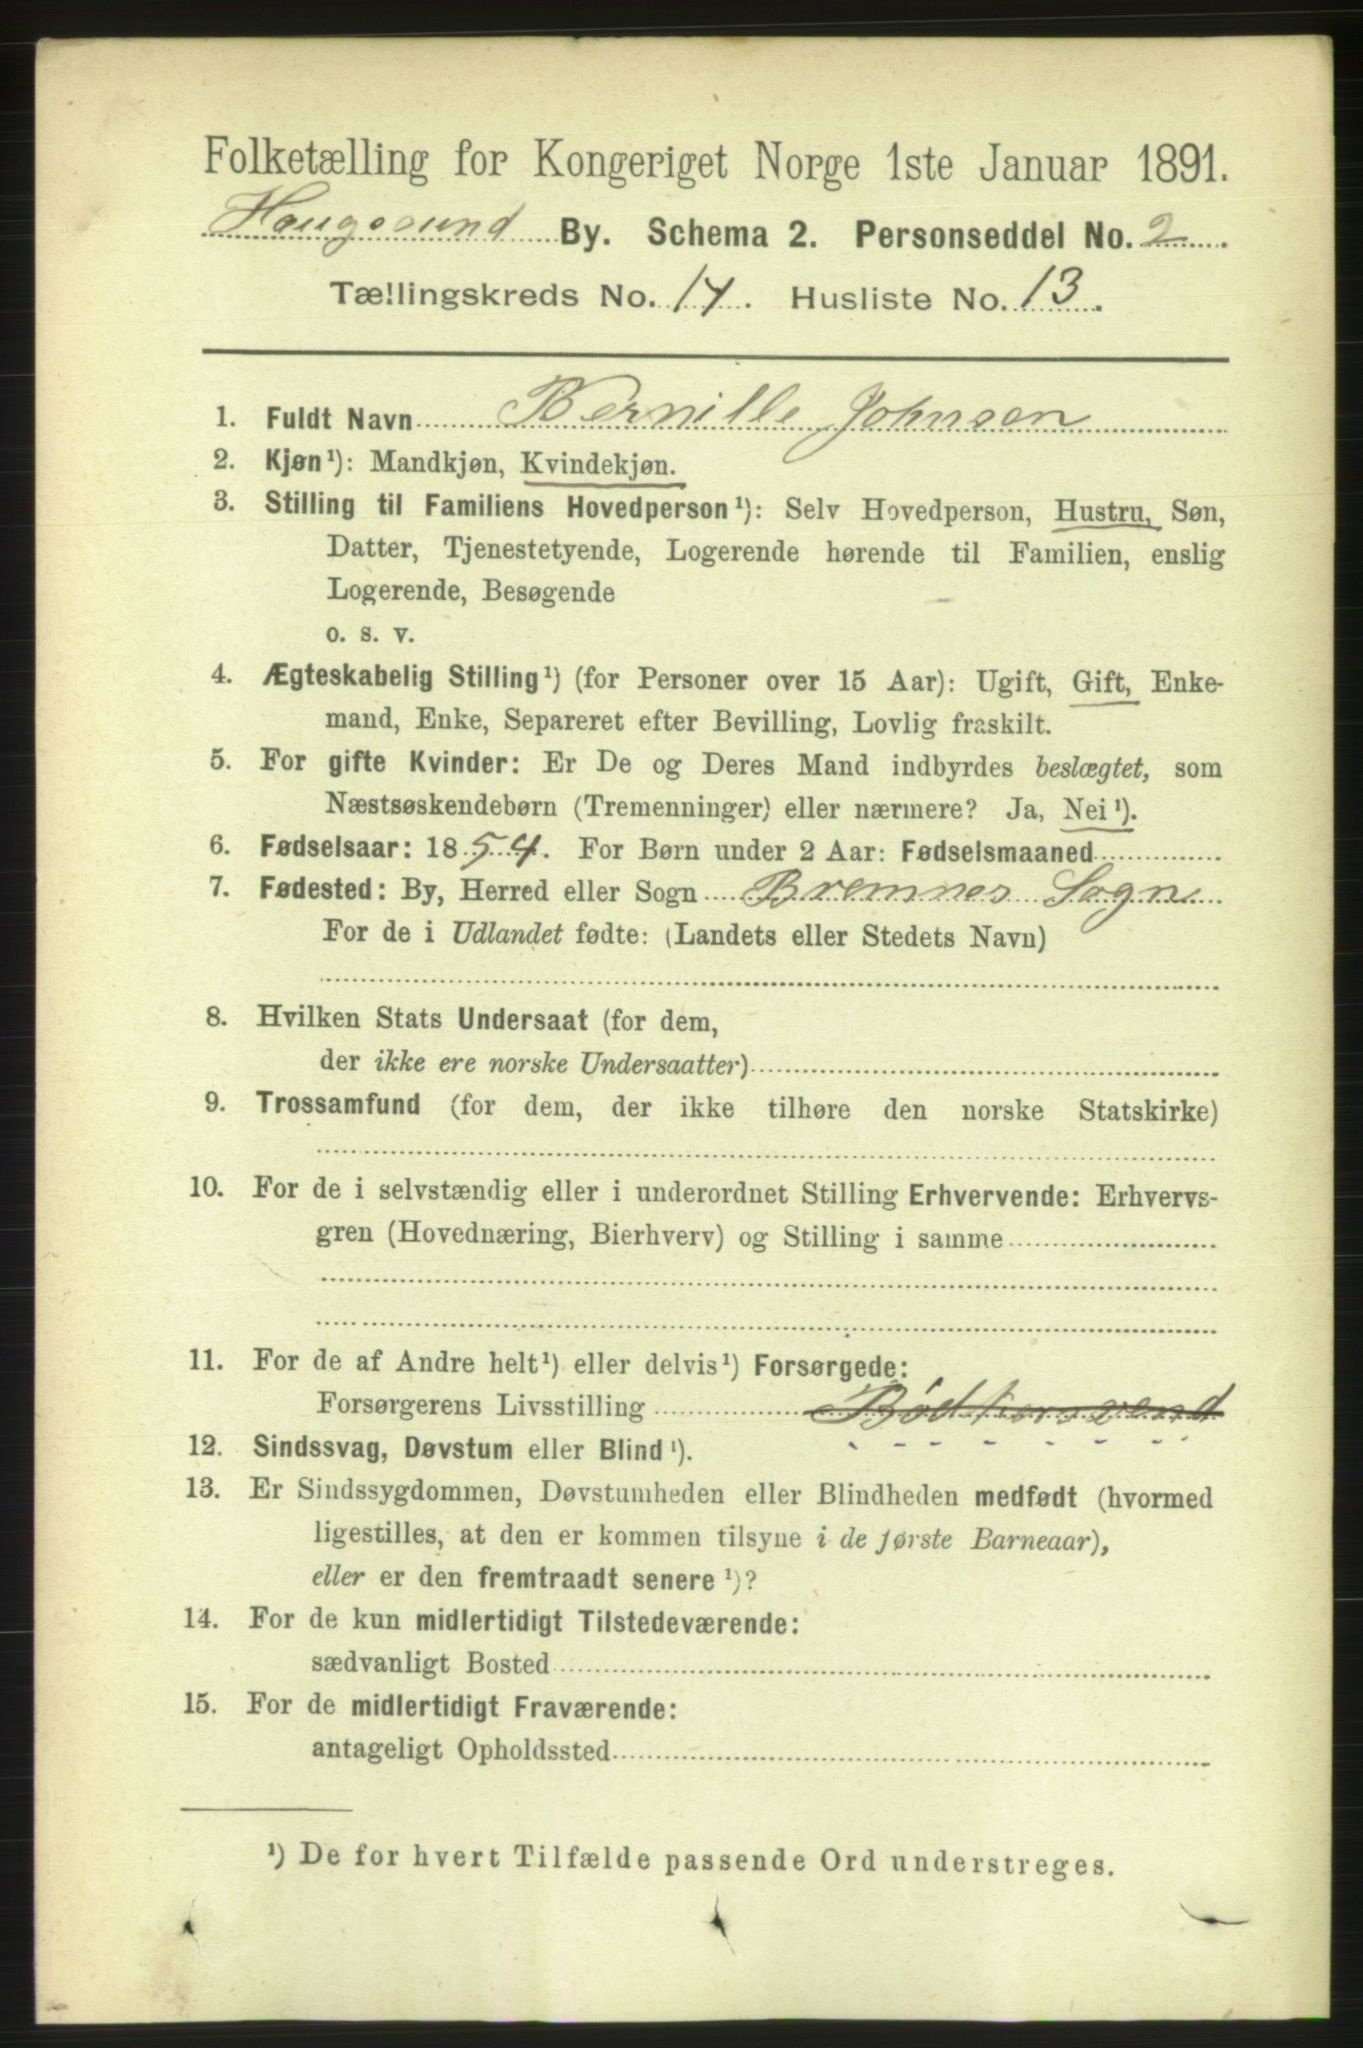 Folketælling for Kongeriget Norge 1ste Januar 1891.
Haugesund By. Schema 2. Personseddel No. 2
Tællingskreds No. 14. Husliste No. 13.
1. Fuldt Navn Bernille Johnsen
2. Kjøn¹): Mandkjøn, Kvindekjøn.
3. Stilling til Familiens Hovedperson¹): Selv Hovedperson, Hustru, Søn,
Datter, Tjenestetyende, Logerende hørende til Familien, enslig
Logerende, Besøgende
o. s. v.
4. Ægteskabelig Stilling¹) (for Personer over 15 Aar): Ugift, Gift, Enke-
mand, Enke, Separeret efter Bevilling, Lovlig fraskilt.
5. For gifte Kvinder: Er De og Deres Mand indbyrdes beslægtet, som
Næstsøskendebørn (Tremenninger) eller nærmere? Ja, Nei¹).
6. Fødselsaar: 1854. For Børn under 2 Aar: Fødselsmaaned
7. Fødested: By, Herred eller Sogn Bremnes Sogn
For de i Udlandet fødte: (Landets eller Stedets Navn)
8. Hvilken Stats Undersaat (for dem,
der ikke ere norske Undersaatter)
9. Trossamfund (for dem, der ikke tilhøre den norske Statskirke)
10. For de i selvstændig eller i underordnet Stilling Erhvervende: Erhvervs-
gren (Hovednæring, Bierhverv) og Stilling i samme
11. For de af Andre helt¹) eller delvis¹) Forsørgede:
Forsørgerens Livsstilling Bødkersvend
12. Sindssvag, Døvstum eller Blind¹).
13. Er Sindssygdommen, Døvstumheden eller Blindheden medfødt (hvormed
ligestilles, at den er kommen tilsyne i de første Barneaar),
eller er den fremtraadt senere¹)?
14. For de kun midlertidigt Tilstedeværende:
sædvanligt Bosted
15. For de midlertidigt Fraværende:
antageligt Opholdssted
¹) De for hvert Tilfælde passende Ord understreges.